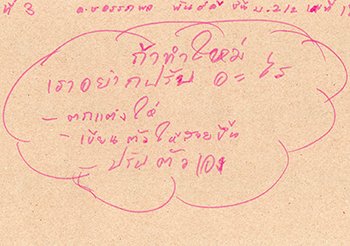 ที่ 3 ด.ช อรรภพล พันธ์ดี ชั้น ม.2/2 เลขที่ 1
ถ้าทำใหม่
เราอยากปรับ อะไร
- ตกแต่งให้
- เขียนตัวให้สวยขึ้น
- ปรับตัวเอง